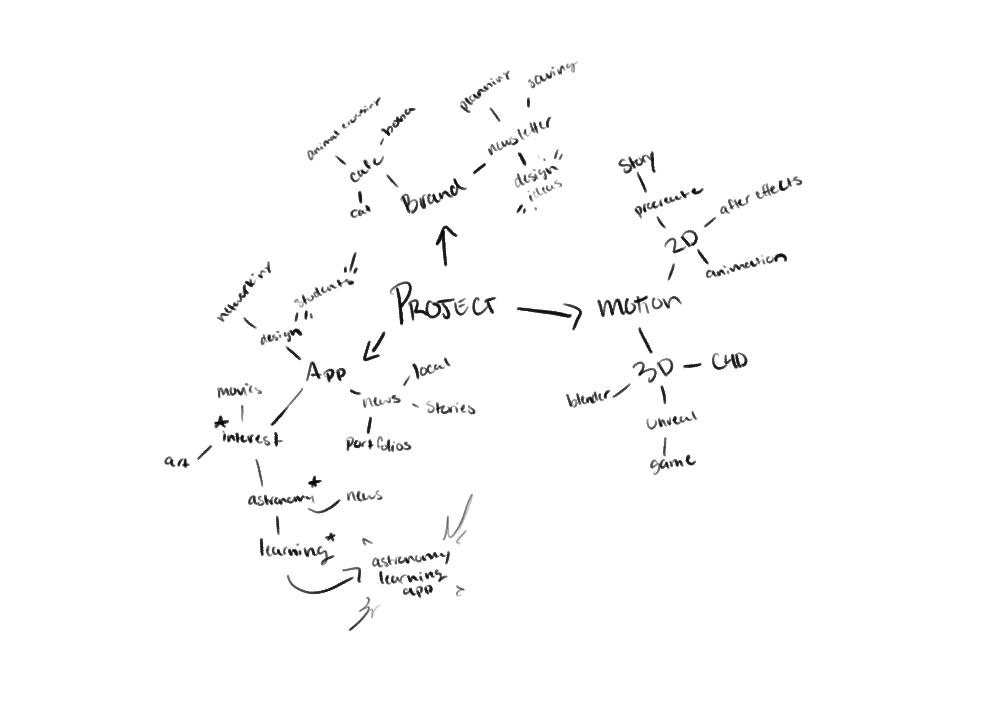 saving
planning
animal crossing
boba
newsletter
cafe
design
ideas
Brand
cat
Story
procreate
after effects
2D
animation
networking
students
design
PROJECT
motion
App
local
3D
C4D
movies
news
stories
blender
interest
portfolios
unreal
art
game
astronomy
news
learning
astronomy
learning
app